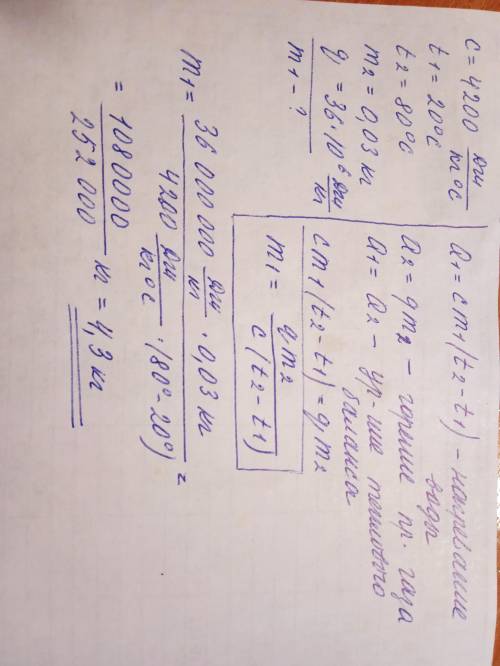 c = 4200 дж/кг°С
t₁ = 20°С
t₂ = 80°С
m₂ = 0,03 кг
q = 36·10⁶ дж/кг
m₁ - ?
Q₁ = cm₁(t₂ - t₁) - нагревание
воды
Q₂ = qm₂ - горение пр. газа
Q₁ = Q₂ - ур-ние теплового
баланса
cm₁(t₂ - t₁) = qm₂
m₁ = qm₂ / c(t₂ - t₁)
m₁ = 36 000 000 дж/кг · 0,03 кг / 4200 дж/кг°С · (80° - 20°) =
= 1080000 / 252 000 кг = 4,3 кг